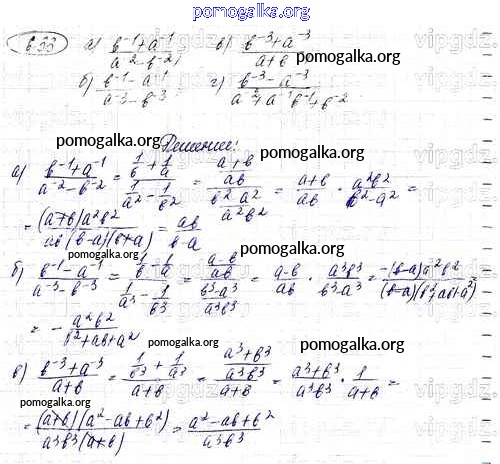 pomogalka.org
6.33 а) (b⁻¹+a⁻¹)/(a⁻²-b⁻²) в) (b⁻³+a⁻³)/(a+b)
б) (b⁻¹-a⁻¹)/(a⁻³-b⁻³) г) (b⁻³-a⁻³)/(a⁻²+a⁻¹b⁻¹+b⁻²)
pomogalka.org pomogalka.org
Решение:
pomogalka.org
а) (b⁻¹+a⁻¹)/(a⁻²-b⁻²) = (1/b+1/a)/(1/a²-1/b²) = ((a+b)/ab)/((b²-a²)/a²b²) = (a+b)/ab · a²b²/(b²-a²) =
= (a+b)a²b²/(ab(b-a)(b+a)) = ab/(b-a)
pomogalka.org
б) (b⁻¹-a⁻¹)/(a⁻³-b⁻³) = (1/b-1/a)/(1/a³-1/b³) = ((a-b)/ab)/((b³-a³)/a³b³) = (a-b)/ab · a³b³/(b³-a³) = -(b-a)a²b²/((b-a)(b²+ab+a²))
= - a²b²/(b²+ab+a²)
pomogalka.org
в) (b⁻³+a⁻³)/(a+b) = (1/b³+1/a³)/(a+b) = ((a³+b³)/a³b³)/(a+b) = (a³+b³)/a³b³ · 1/(a+b) =
pomogalka.org
= (a+b)(a²-ab+b²)/(a³b³(a+b)) = (a²-ab+b²)/a³b³
pomogalka.org